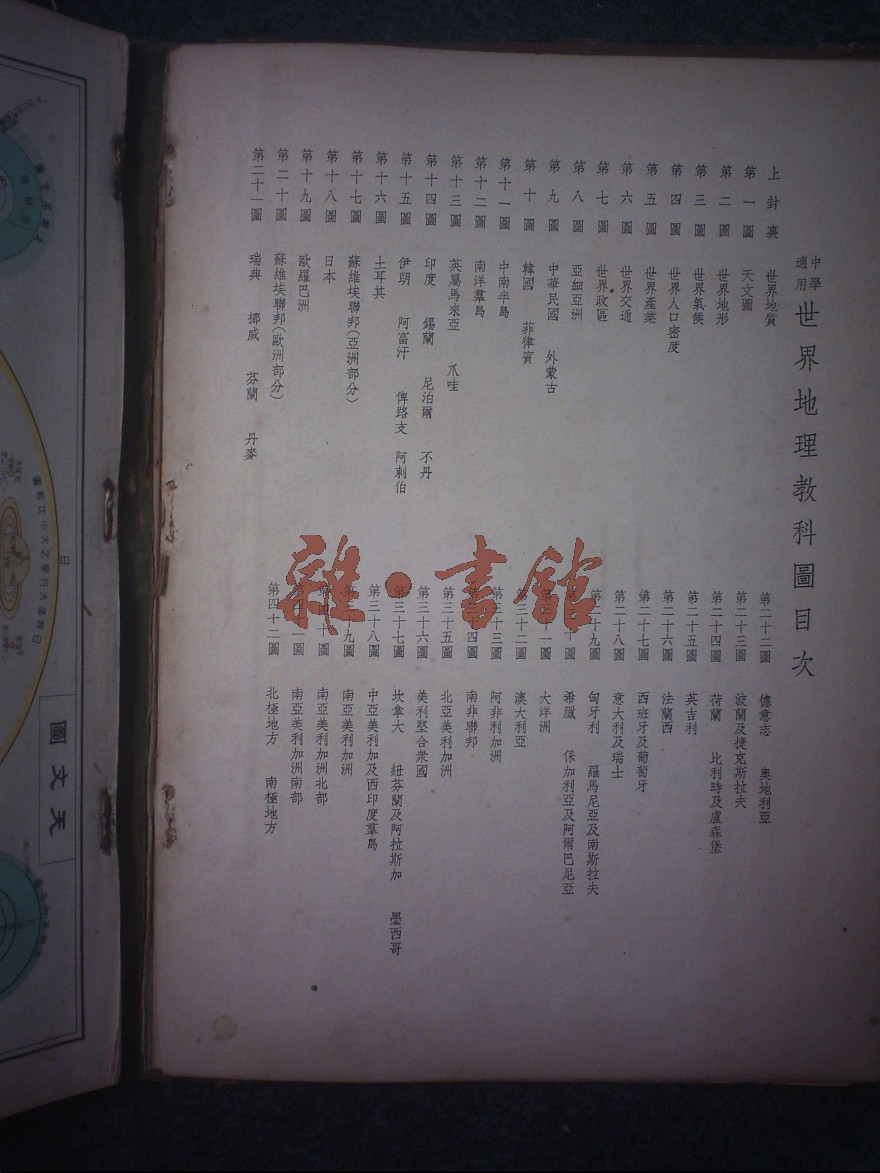 中學
適用
世界地理教科圖目次
上封裏 世界地質
第一圖 天文圖
第二圖 世界地形
第三圖 世界氣候
第四圖 世界人口密度
第五圖 世界產業
第六圖 世界交通
第七圖 世界政區
第八圖 亞細亞洲
第九圖 中華民國 外蒙古
第十圖 韓國 菲律賓
第十一圖 中南半島
第十二圖 南洋羣島
第十三圖 英屬馬來亞 爪哇
第十四圖 印度 錫蘭 尼泊爾 不丹
第十五圖 伊朗 阿富汗 俾路支 阿剌伯
第十六圖 土耳其
第十七圖 蘇維埃聯邦(亞洲部分)
第十八圖 日本
第十九圖 歐羅巴洲
第二十圖 蘇維埃聯邦(歐洲部分)
第二十一圖 瑞典 挪威 芬蘭 丹麥
第二十二圖 德意志 奧地利亞
第二十三圖 波蘭及捷克斯拉夫
第二十四圖 荷蘭 比利時及盧森堡
第二十五圖 英吉利
第二十六圖 法蘭西
第二十七圖 西班牙及葡萄牙
第二十八圖 意大利及瑞士
第二十九圖 匈牙利 羅馬尼亞及南斯拉夫
十圖 希臘 保加利亞及阿爾巴尼亞
一圖 大洋洲
第三十二圖 澳大利亞
十三圖 阿非利加洲
十四圖 南非聯邦
第三十五圖 北亞美利加洲
第三十六圖 美利堅合衆國
第三十七圖 坎拿大 紐芬蘭及阿拉斯加 墨西哥
第三十八圖 中亞美利加及西印度羣島
九圖 南亞美利加洲
十圖 南亞美利加洲北部
一圖 南亞美利加洲南部
第四十二圖 北極地方 南極地方
雜·書館
天文圖
日向諸大行星之大小比較圖
日